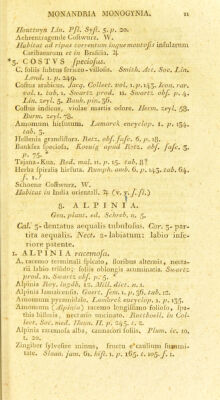 MONANDRIA MONOGYNIA. 21
Houttuyn Lin. Pfl. Syst. 5. p. 20.
Aehrentragender Costwurz. W.
Habitat ad ripas torrentum inque montosis insularum
Caribaearum et in Brasilia. ♃
* 3. COSTUS speciosus.
C. foliis subtus sericeo-villosis. Smith. Act. Soc. Lin.
Lond. 1. p. 249.
Costus arabicus. Jacq. Collect. vol. 1. p. 143. Icon. rar.
vol. 1. tab. 1. Swartz prod. 11. Swartz obs. p. 4.
Lin. zeyl. 5. Bauh. pin. 36.
Costus indicus, violae martis odore. Herm. zeyl. 58.
Burm. zeyl. 78.
Amomum hirsutum. Lamarck encyclop. 1. p. 134.
tab. 3.
Hellenia grandiflora. Retz. obs. fasc. 6. p. 18.
Banksea speciosa. Koenig apud Retz. obs. fasc. 3.
p. 75.
Tsjana-Kua. Rhed. mal. 11. p. 15. tab. 8.
Herba spiralis hirsuta. Rumph. amb. 6. p. 143. tab. 64.
f. 1.
Schoene Costwurz. W.
Habitat in India orientali. ♃ (v. s. fl.)
8. ALPINIA.
Gen. plant. ed. Schreb. n. 5.
Cal. 3- dentatus aequalis tubulosus. Cor. 3- par-
tita aequalis. Nect. 2- labiatum: labio infe-
riore patente.
1. ALPINIA racemosa.
A. racemo terminali spicato, floribus alternis, necta-
rii labio trifido; foliis oblongis acuminatis. Swartz
prod. 11. Swartz obs. p. 5.
Alpinia Roy. lugdb. 12. Mill. dict. n. 1.
Alpinia Jamaicensis. Gaert. sem. 1. p. 36. tab. 12.
Amomum pyramidale. Lamarck encyclop. 1. p. 135.
Amomum (Alpinia) racemo longissimo folioso, spa-
this bifloris, nectario unciuato. Rottboell. in Col-
lect. Soc. med. Haun. II. p. 245. t. 2.
Alpinia racemosa alba, cannacori foliis. Plum. ic. 10.
t. 20.
Zingiber sylvestre minus, fructu e caulium summi-
tate. Sloan. jam. 61. hist. 1. p. 165. t. 105. f. 1.